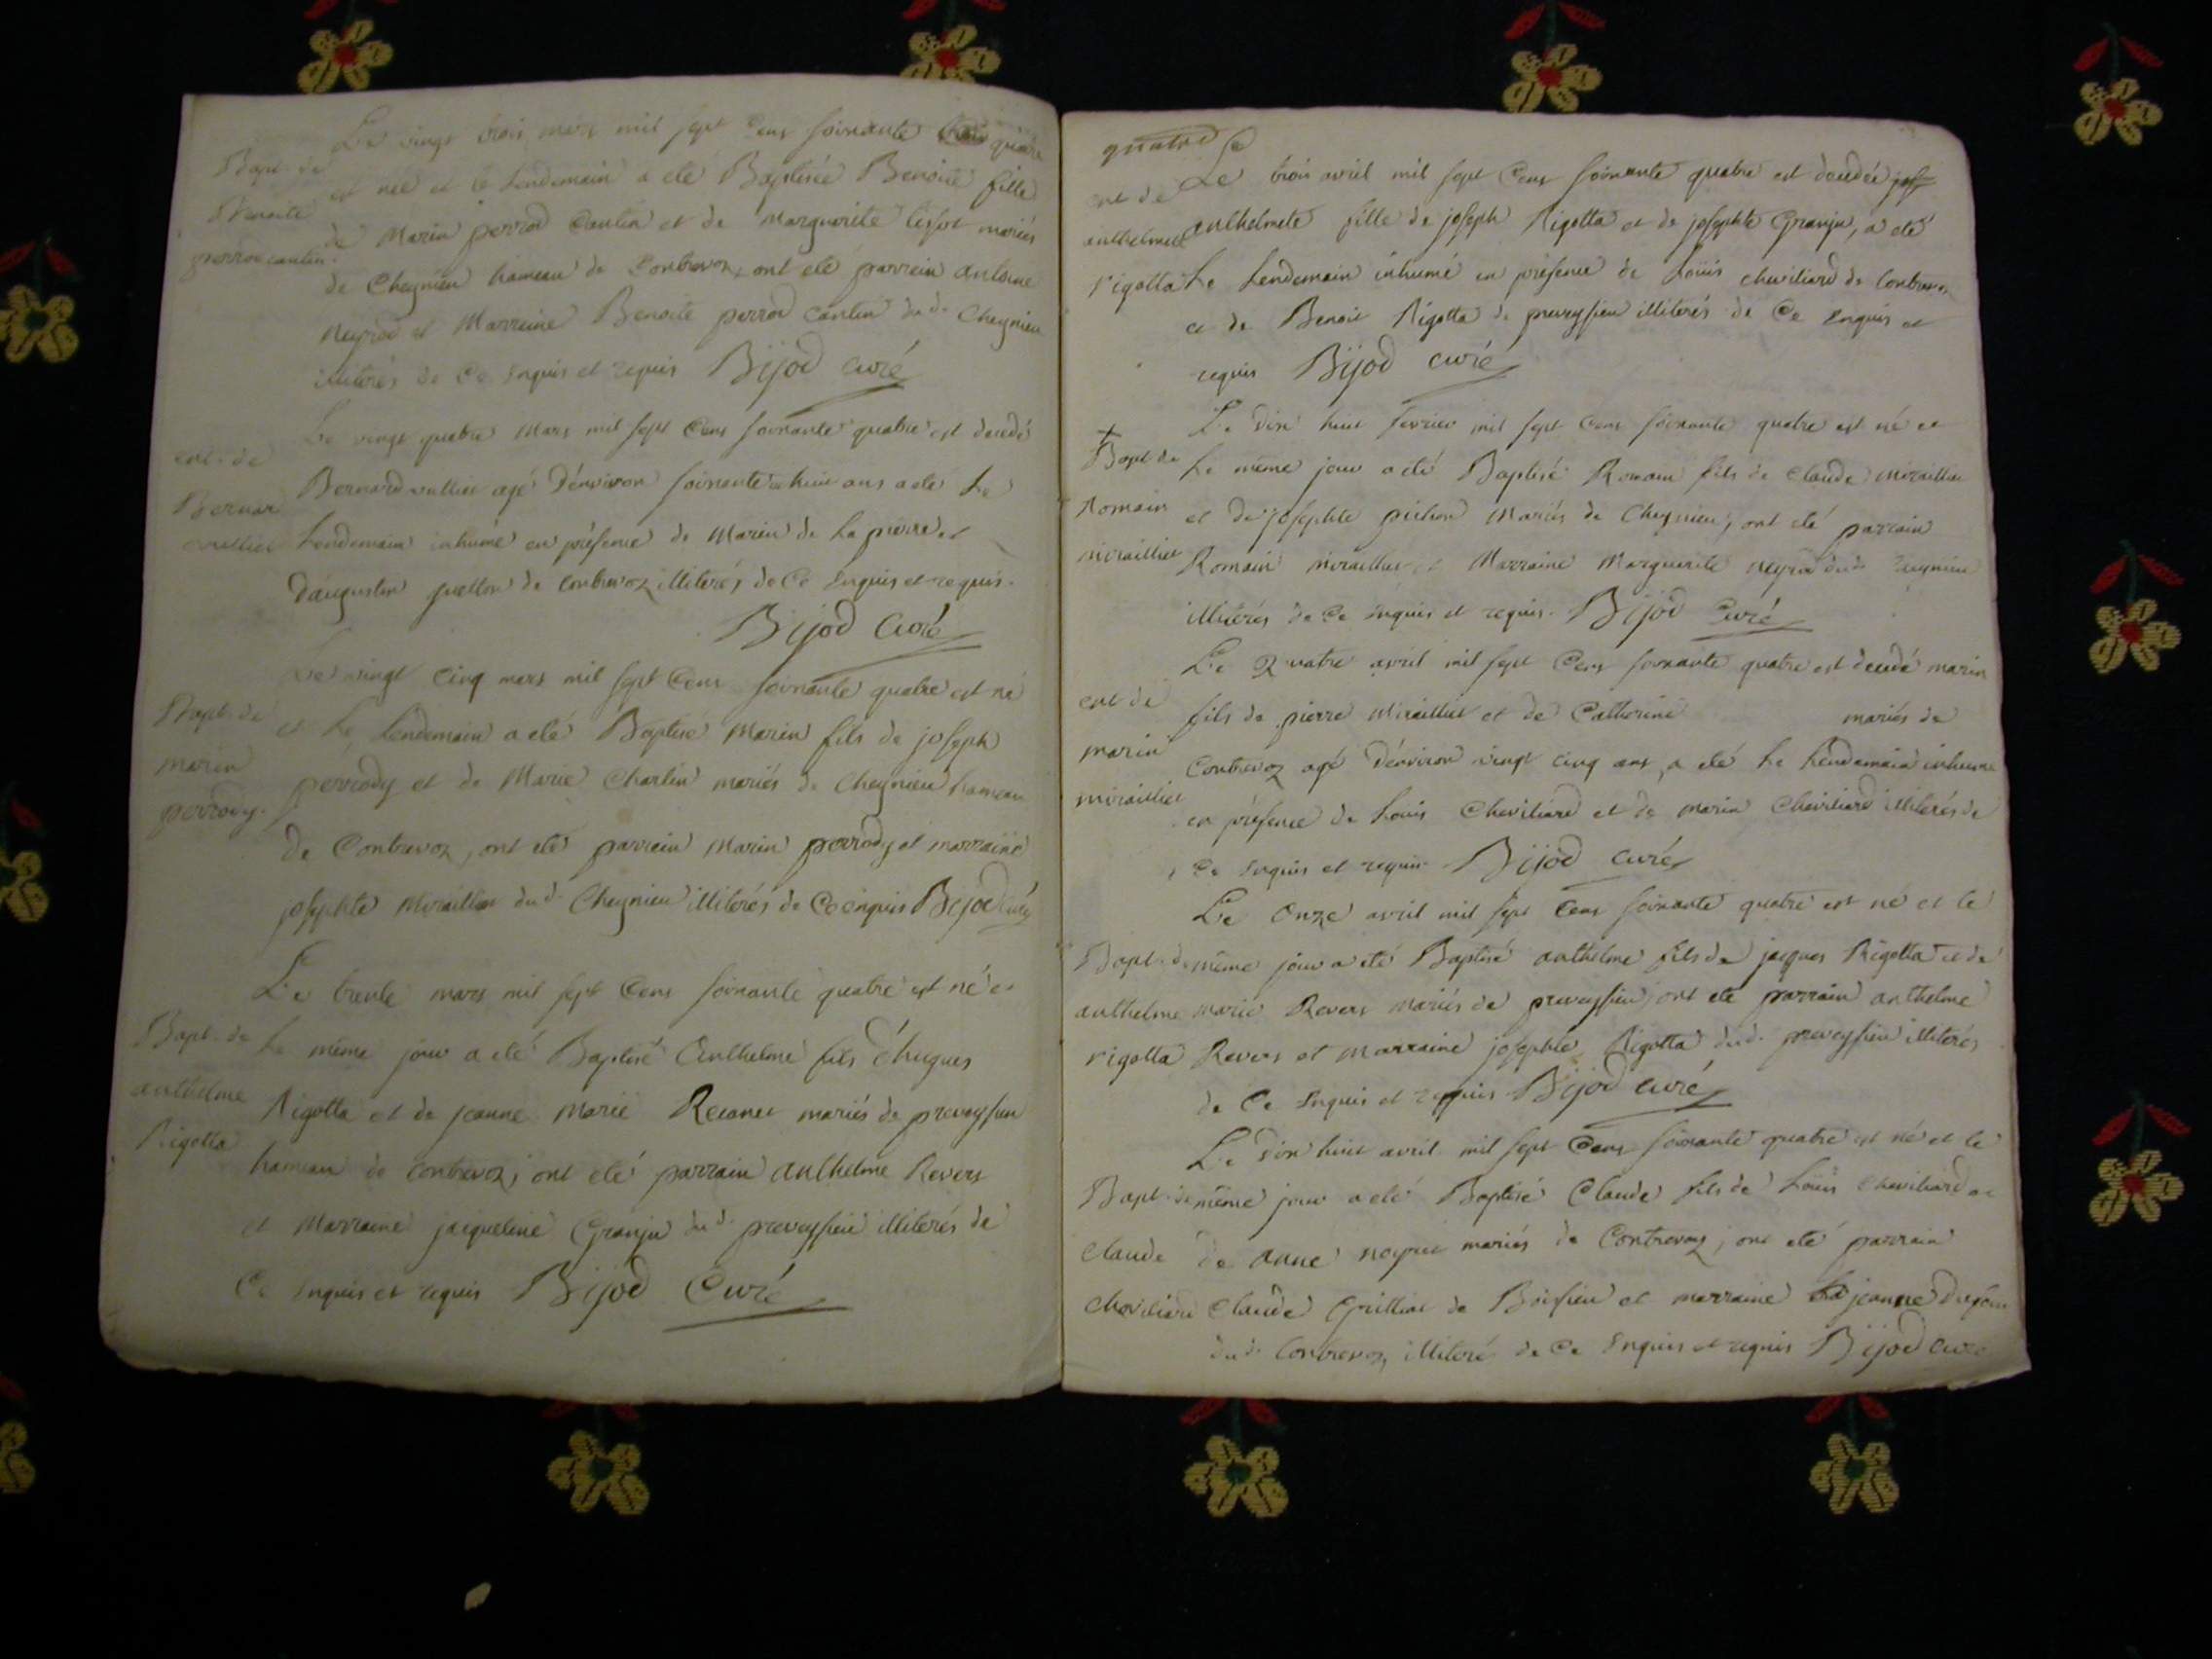 Le vingt trois mars mil sept Cens soixante quatre
Bapt. de
est née et le Lendemain a eté Baptisée Benoite fille
Benoite
de Marin perrod Cantin et de Marguerite tissot mariés
perrod cantin.
de Cheynieu hameau de Contrevoz, ont eté parrein antoine
Neyrod et Marreine Benoite perrod Cantin du d. Cheynieu
illiterés de Ce Enquis et requis Bijod curé
Le vingt quatre Mars mil sept Cens soixante quatre est decedé
ent. de
Bernard vulliet agé d'environ soixante et huit ans a eté Le
Bernar
vulliet Lendemain inhumé en présence de Marin de La pierre et
d'augustin de Contrevoz illiterés de Ce Enquis et requis.
Bijod Curé
Le vingt Cinq mars mil sept Cens soixante quatre est né
Bapt. de
et Le Lendemain a eté Baptisé Marin fils de joseph
marin
perrody et de Marie Charlin mariés de Cheynieu hameau
perrody.
de Contrevoz, ont eté parrein Marin perrody et marraine
josephte Miraillet du d. Cheynieu illiterés de Ce enquis Bijod curé
Le trente mars mil sept Cens soixante quatre est né et
Bapt. de Le même jour a eté Baptisé Anthelme fils d'hugues
anthelme
Rigotta et de jeanne Marie mariés de preveyssieu
Rigotta
hameau de Contrevoz, ont eté parrain anthelme Revers
et Marraine jacqueline Granju du d. preveyssieu illiterés de
Ce Enquis et requis Bijod Curé
quatre
Le trois avril mil sept Cens soixante quatre est decedée
ent de
anthelmete fille de joseph Rigotta et de josephte Granju, a eté
anthelmete
rigotta Le Lendemain inhumé en présence de Loüis cheviliard de Contrevoz
et de Benoit Rigotta de preveyssieu illiterés de Ce Enquis et
requis Bijod curé
Le dix huit fevrier mil sept Cens soixante quatre est né et
Bapt de Le même jour a eté Baptisé Romain fils de Claude Miraillet
Romain et de josephte pichon Mariés de Cheynieu, ont eté parrain
miraillet Romain miraillet et Marraine Marguerite neyrod du d. Cheynieu
illiterés de Ce Enquis et requis. Bijod Curé
Le Quatre avril mil sept Cens soixante quatre est decedé marin
ent de fils de pierre Miraillet et de Catherine mariés de
marin Contrevoz agé d'environ vingt cinq ans, a eté Le Lendemain inhume
miraillet en présence de Louis Cheviliard et de marin Cheviliard illiterés de
Ce Enquis et requis Bijod curé
Le Onze avril mil sept Cens soixante quatre est né et le
Bapt. de même jour a eté Baptisé anthelme fils de jacques Rigotta et de
anthelme marie Revers mariés de preveyssieu, ont eté parrain anthelme
rigotta Revers et Marraine josephte Rigotta du d. preveyssieu illiterés
de Ce Enquis et requis Bijod curé
Le dix huit avril mil sept Cens soixante quatre est né et le
Bapt. de même jour a eté Baptisé Claude fils de Loüis Cheviliard et
Claude de anne neyret mariés de Contrevoz, ont eté parrain
Cheviliard Claude Grilliat de Boissieu et marraine jeanne
du d. Contrevoz, illiteré de Ce Enquis et requis Bijod curé